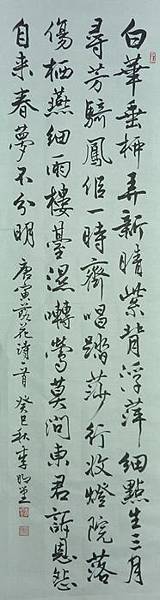 白華垂柳弄新晴紫背浮萍細點生三月
尋芳騎鳳侶一時齊唱踏莎行收燈院落
傷栖燕細雨樓臺濕囀鶯莫問東君訴恩怨
自来春夢不分明 唐寅落花詩一首 癸巳秋李